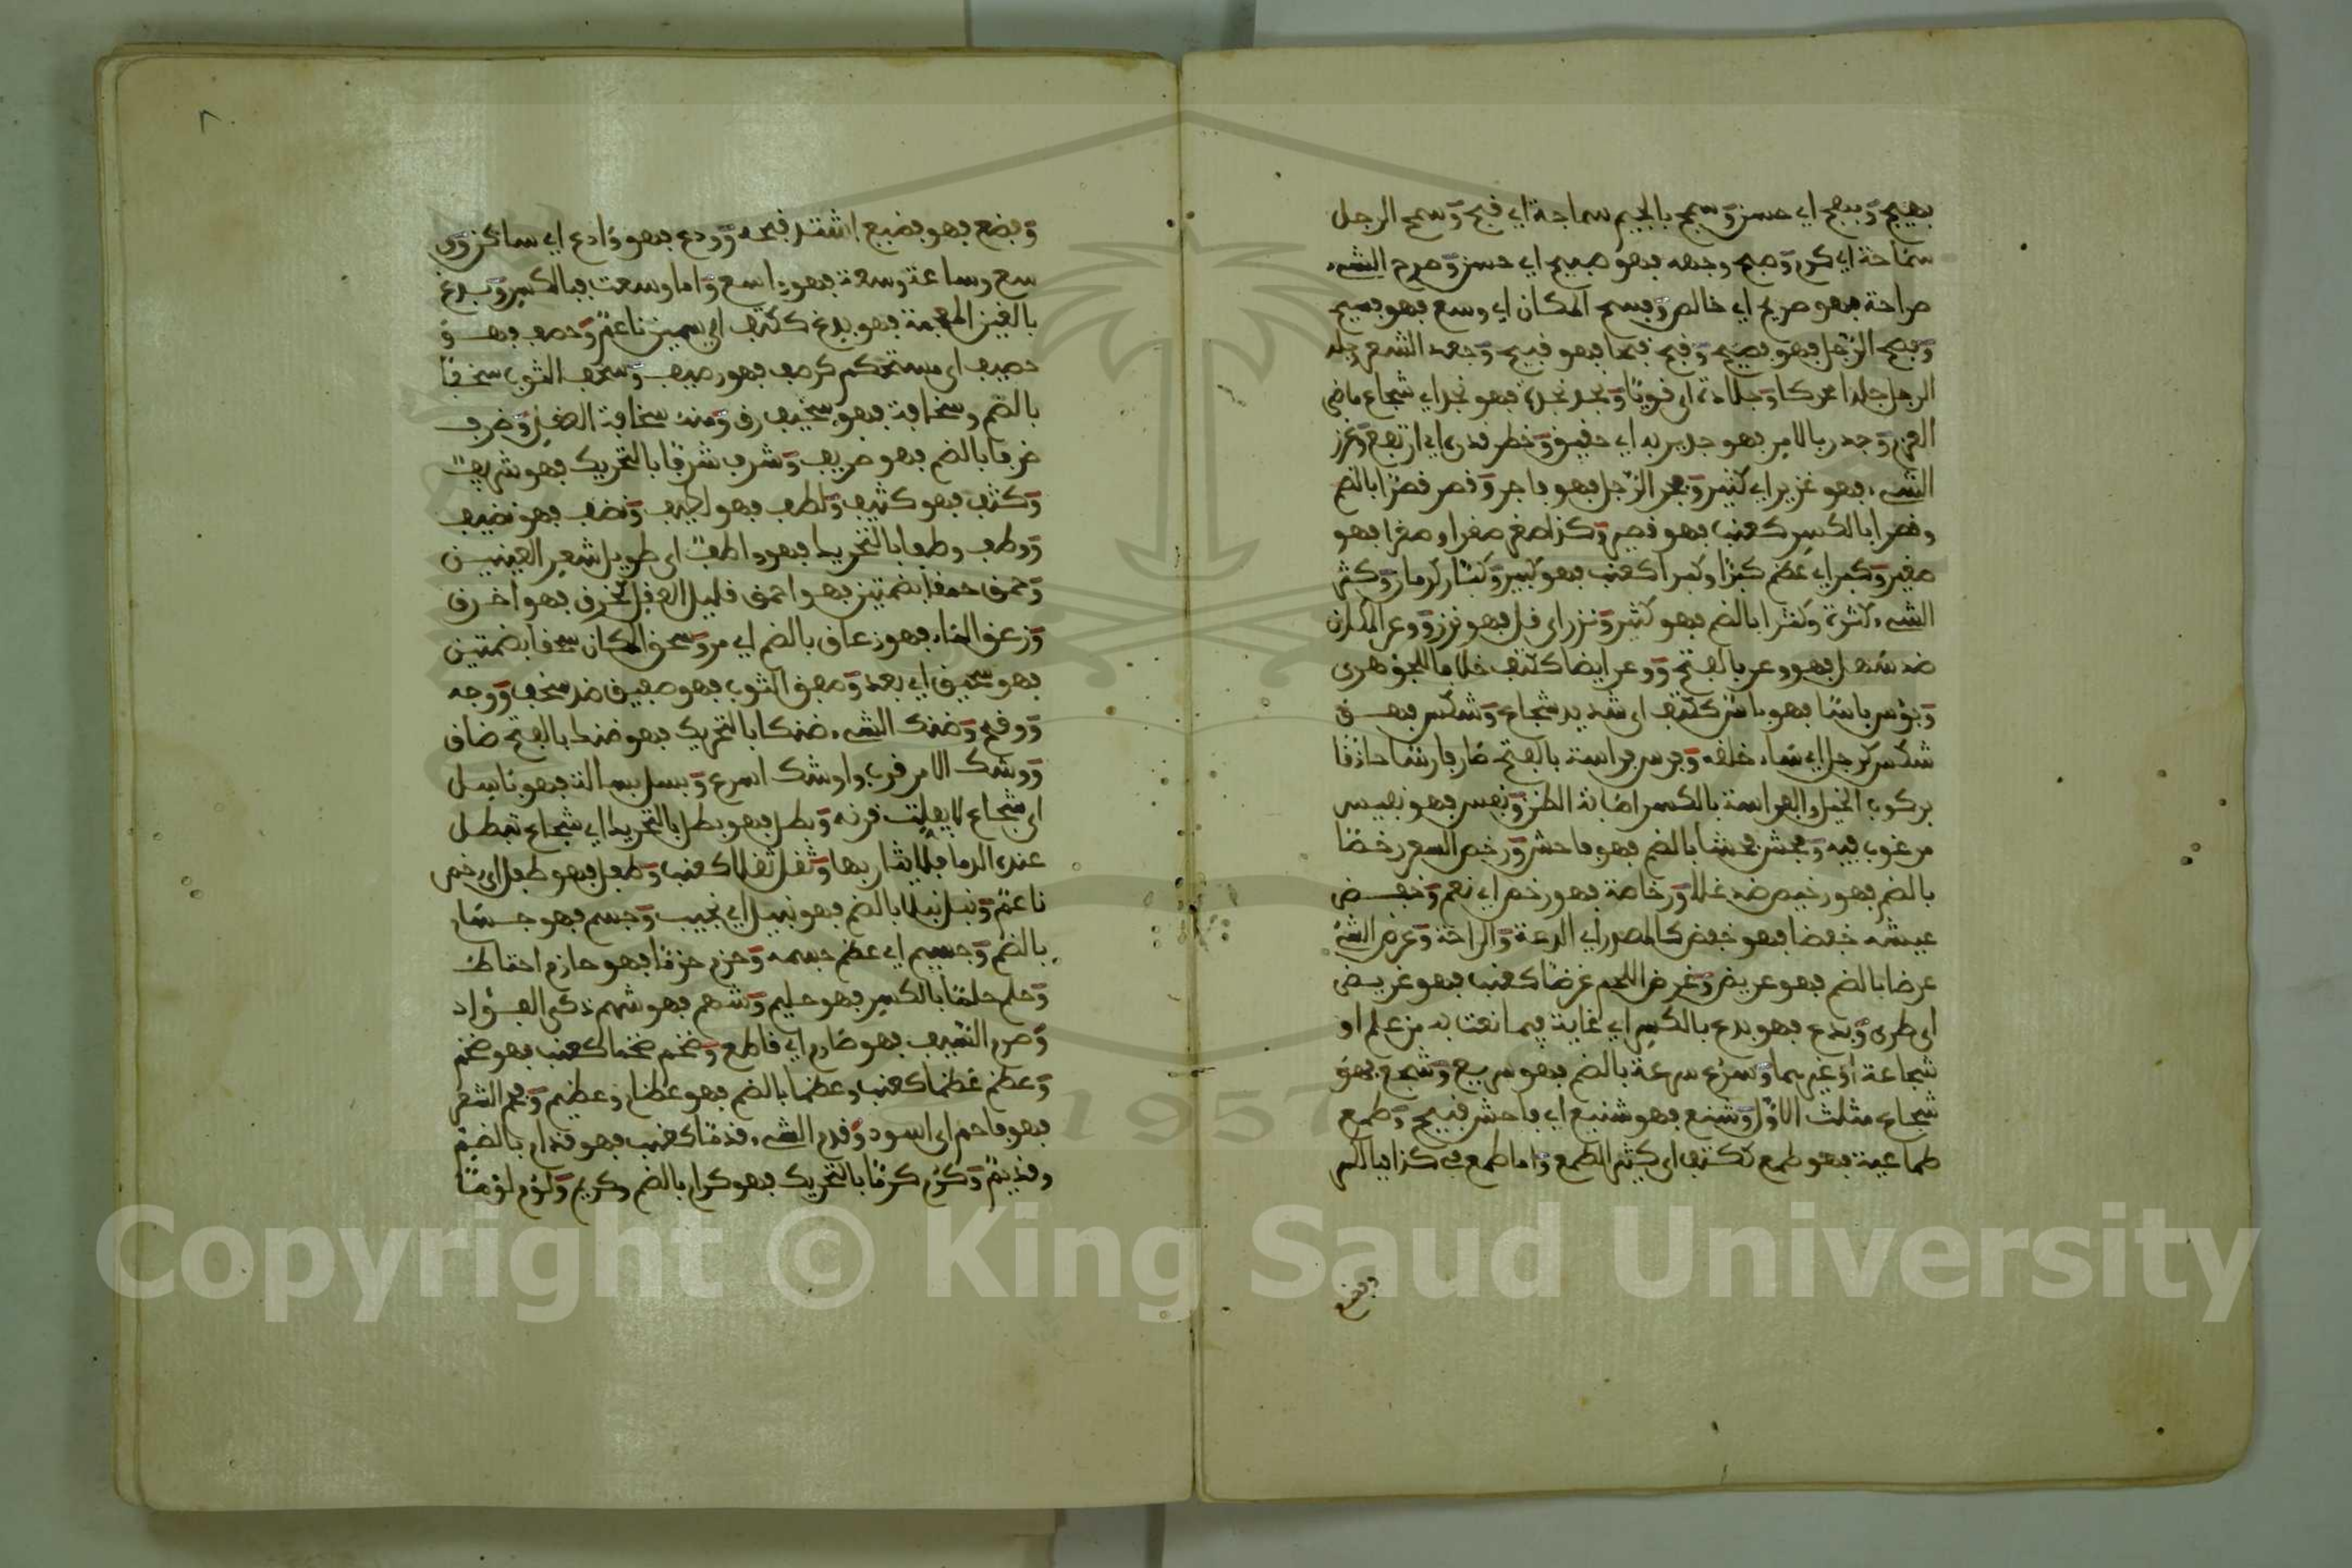 بهيج وبهج اي حسن وسمج بالجيم سماجة اي قبح وسمح الرجل
سماحة اي كرم وصبح وجهه فهو صبيح اي حسن وصرح الشيء
صراحة فهو صريح اي خالص وفسح المكان اي وسع فهو فسيح
وفصح الرجل فهو فصيح وقبح قبحا فهو قبيح وجعد الشعر وجلد
الرجل جلدا محركا وجلادة اي قويا ونجد نجدة فهو نجد اي شجاع ماضي
العزم وجدر بالامر فهو جدير به اي حقيق وخطر قدره اي ارتفع وغزر
الشيء فهو غزير اي كثير وفجر الرجل فهو فاجر وقصر قصرا بالضم
وقصرا بالكسر كعنب فهو قصير وكذا صغر صغرا وصغرا فهو
صغير وكبر اي عظم كبرا وكبرا كعنب فهو كبير وكبار كرمان وكثر
الشيء كثرة وكثرا بالضم فهو كثير ونزر اي قل فهو نزر ووعر المكان
ضد سهل فهو وعر بالفتح ووعر ايضا ككتف خلافا للجوهري
وبؤس باسا فهو بائس ككتف اي شديد شجاع وشكس فهو
شكس كرجل اي ساء خلقه وفرس فراسة بالفتح صار فارسا حاذقا
بركوب الخيل والفراسة بالكسر اصابة الظن ونفس فهو نفيس
مرغوب فيه وفحش فحشا بالضم فهو فاحش ورخص السعر رخصا
بالضم فهو رخيص ضد غلا ورخاصة فهو رخص اي نعم وخفض
عيشه خفضا فهو خفض كالمصدر اي الدعة والراحة وعرض الشيء
عرضا بالضم فهو عريض وغرض اللحم غرضا كعنب فهو غريض
اي طري وبدع فهو بدع بالكسر اي غاية فيما نعت به من علم او
شجاعة او غيرهما وسرع سرعة بالضم فهو سريع وشجع فهو
شجاع مثلث الاول وشنع فهو شنيع اي فاحش قبيح وطمع
طماعية فهو طمع ككتف اي كثير الطمع واما طمع في كذا فبالكسر
وفضع
٨
وفضع فهو فضيع اشتد قبحه وودع فهو وادع اي ساكن و
وسع وساعة وسعة فهو واسع واما وسعت فبالكسر وبدغ
بالغين المعجمة فهو بدغ ككتف اي سمين ناعم وحصف فهو
حصيف اي مستحكم كرصف فهو رصيف وسخف الثوب سخفا
بالضم وسخافة فهو سخيف رق ومنه سخافة العقل وظرف
ظرفا بالضم فهو ظريف وشرف شرفا بالتحريك فهو شريف
وكثف فهو كثيف ولطف فهو لطيف ونضف فهو نضيف
ووطف وطفا بالتحريك فهو واطف اي طويل شعر العينين
وحمق حمقا بضمتين فهو احمق قليل العقل كخرق فهو اخرق
وزعق الماء فهو زعاق بالضم اي مر وسحق المكان سحقا بضمتين
فهو سحيق اي بعد وصفق الثوب فهو صفيق ضد سخف ووجه
ووقح وضنك الشيء ضنكا بالتحريك فهو ضنك بالفتح ضاق
ووشك الامر قرب واوشك اسرع وبسل بسالة فهو باسل
اي شجاع لا يفلت قرنه وبطل فهو بطل بالتحريك اي شجاع تبطل
عنده الدما فلا يثار بها وثقل ثقلا كعنب وطفل فهو طفل اي رخص
ناعم ونبل نبلا بالضم فهو نبيل اي نجيب وجسم فهو جسام
بالضم وجسيم اي عظم جسمه وحزم حزما فهو حازم احتاط
وحلم حلما بالكسر فهو حليم وشهم فهو شهم ذكي الفؤاد
وصرم السيف فهو صارم اي قاطع وضخم ضخما كعنب فهو ضخم
وعظم عظما كعنب وعظما بالضم فهو عظام وعظيم وفحم الشعر
فهو فاحم اي اسود وقدم الشيء قدما كعنب فهو قدام بالضم
وقديم وكرم كرما بالتحريك فهو كرام بالضم وكريم ولؤم لؤما
Copyright © King Saud University
1957